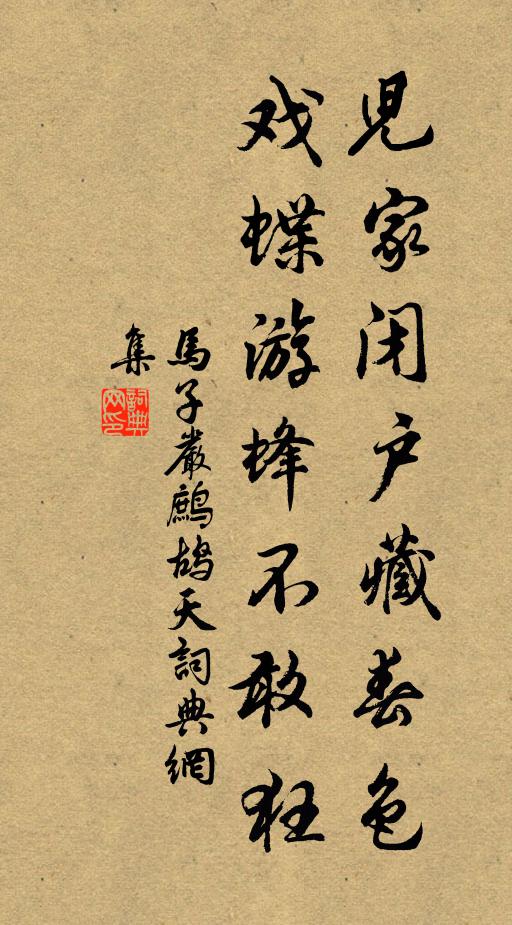 兒家闭户藏春色
戏蝶游蜂不敢狂
馬子嚴鷓鴣天詞典網
集
詞典
网印